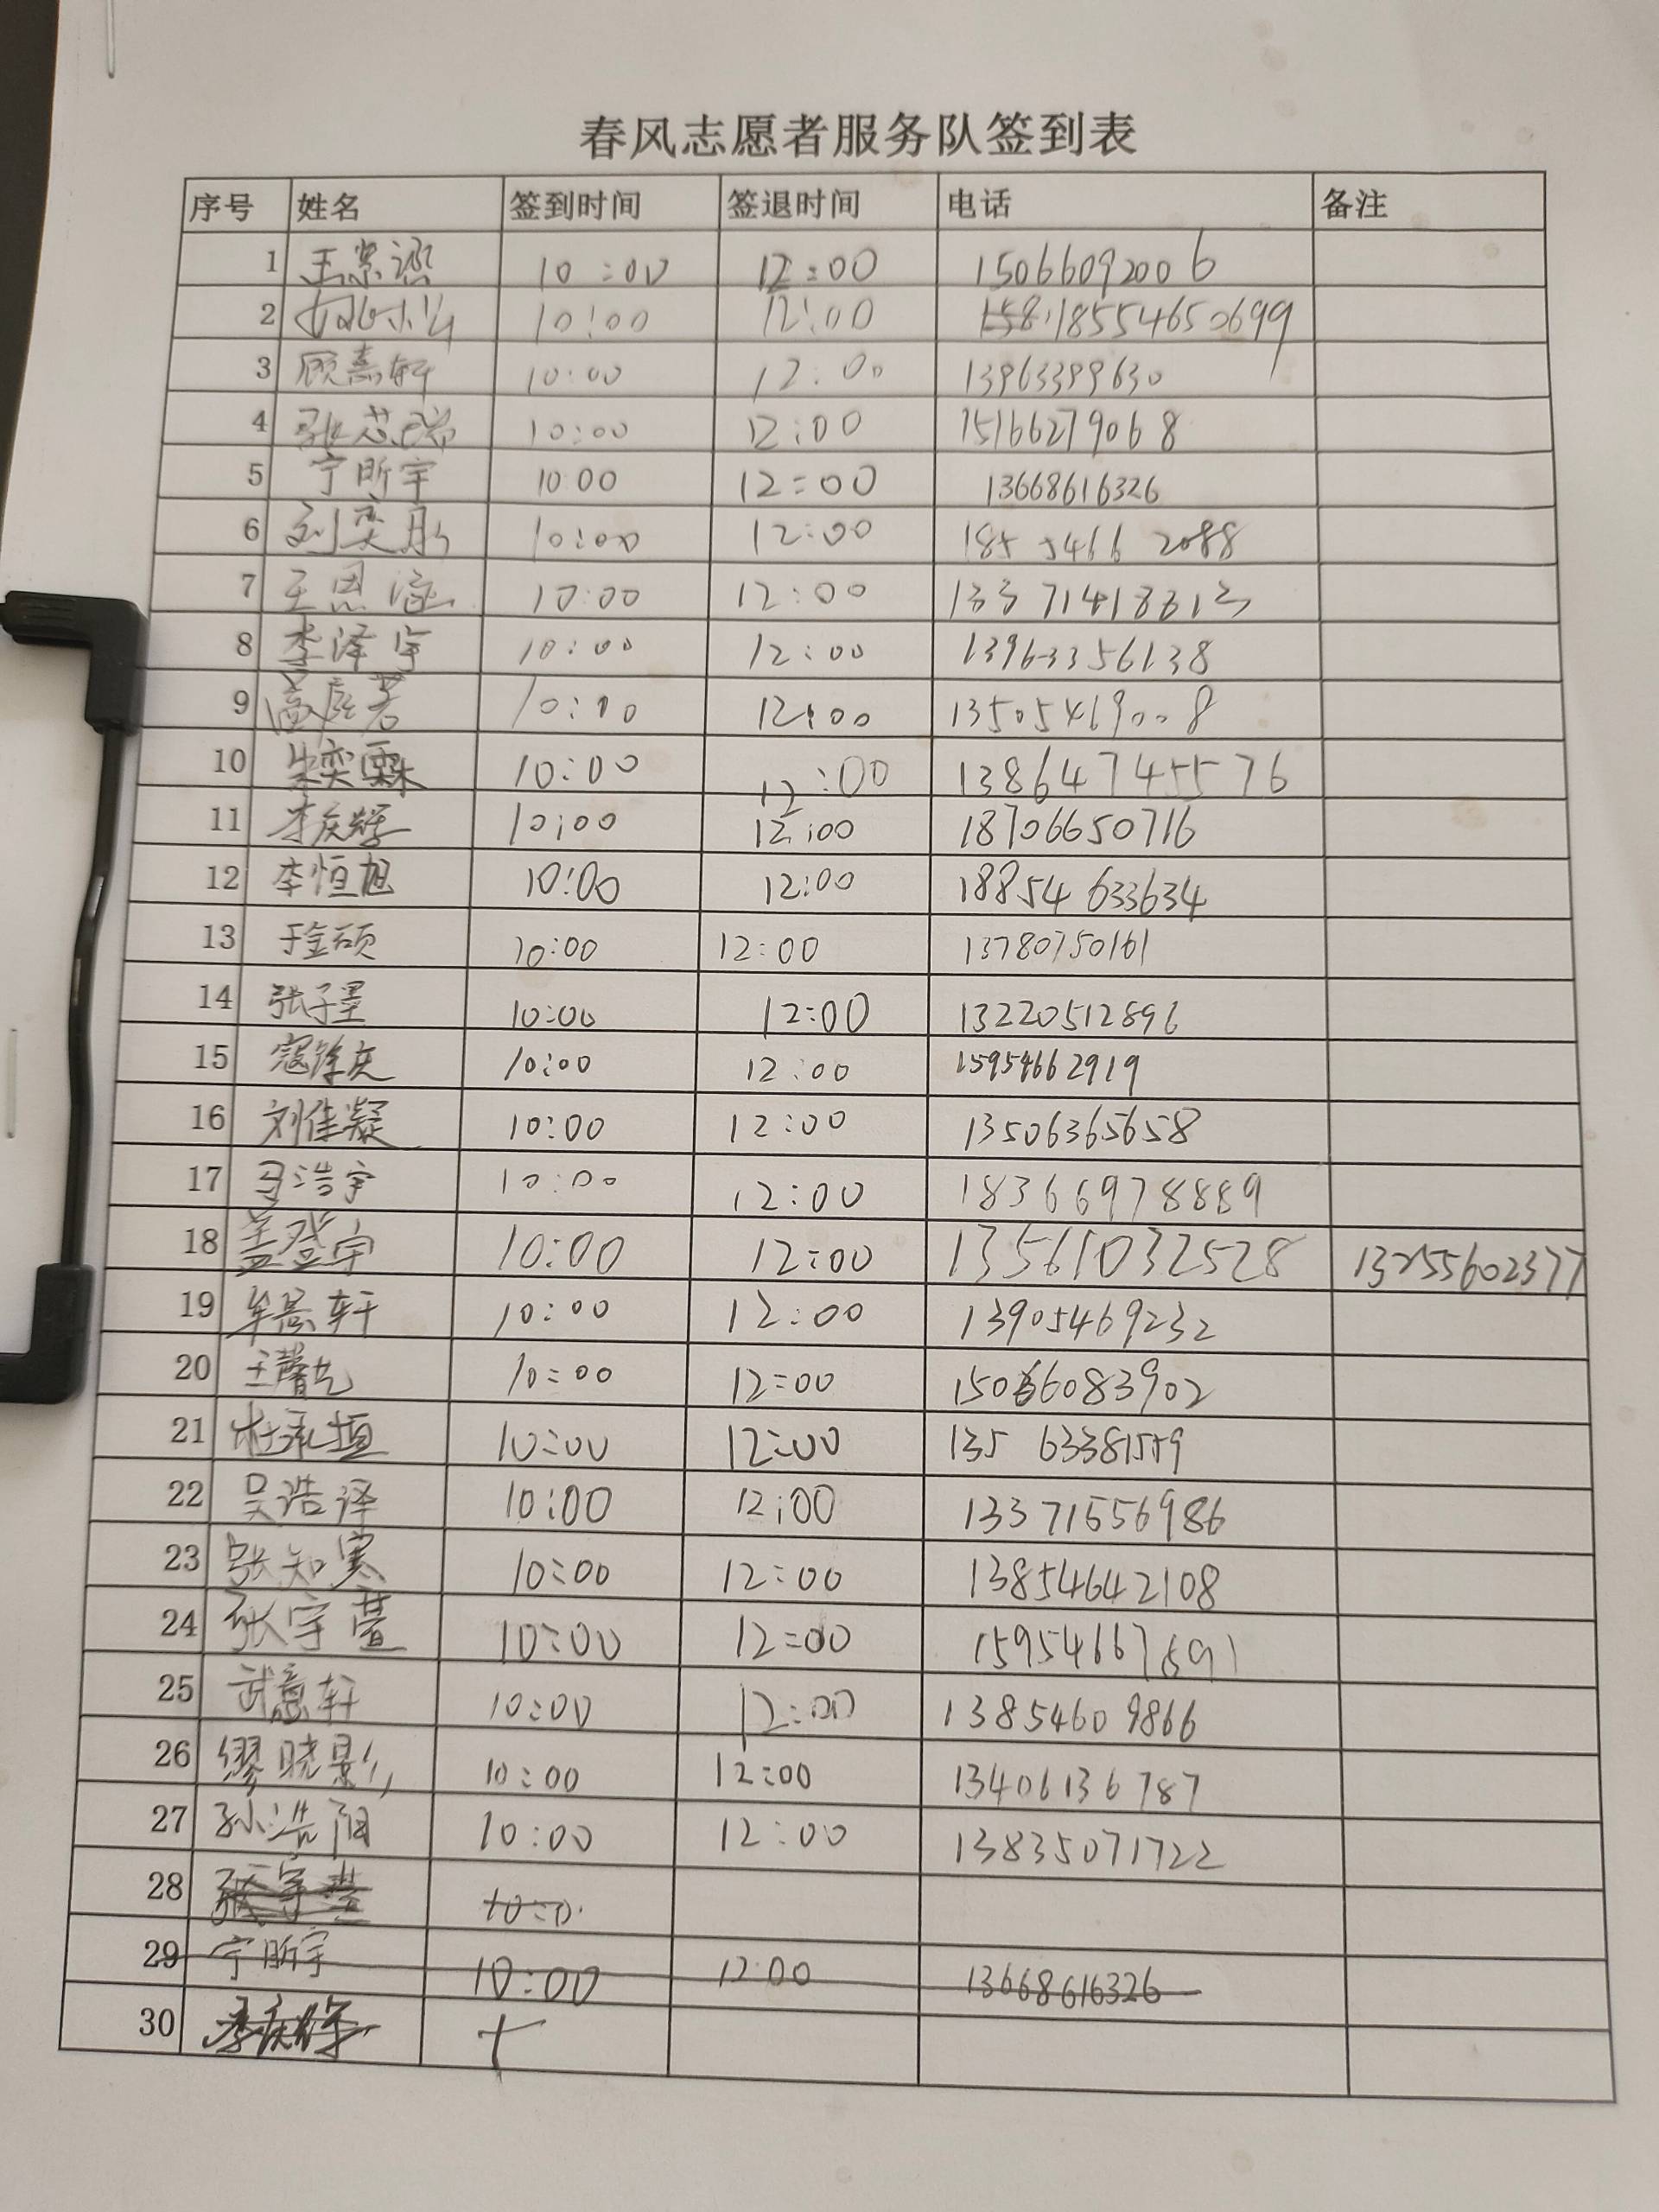 春风志愿者服务队签到表
序号 姓名 签到时间 签退时间 电话 备注
1 10:00 12:00 15066092006
2 10:00 12:00 18554650699
3 顾熹轩 10:00 12:00 13963399630
4 张芯瑞 10:00 12:00 15166279068
5 宁昕宇 10:00 12:00 13668616326
6 刘奕彤 10:00 12:00 185 5466 2088
7 王思涵 10:00 12:00 133 71418313
8 李泽宇 10:00 12:00 13963356138
9 10:00 12:00 13505469008
10 朱奕霖 10:00 12:00 13864745576
11 李庆辉 10:00 12:00 18706650716
12 李恒旭 10:00 12:00 18854 633634
13 于金硕 10:00 12:00 13780750161
14 张子墨 10:00 12:00 13220512896
15 10:00 12:00 15954662919
16 刘佳凝 10:00 12:00 13506365658
17 马浩宇 10:00 12:00 18366978889
18 盖登宇 10:00 12:00 13561032528 13255602377
19 牟景轩 10:00 12:00 13905469232
20 10:00 12:00 15066083902
21 杜承恒 10:00 12:00 135 63381559
22 吴浩译 10:00 12:00 13371556986
23 张知寒 10:00 12:00 13854642108
24 张宇萱 10:00 12:00
25 武意轩 10:00 12:00 13854609866
26 缪晓影 10:00 12:00 13406136787
27 孙浩阳 10:00 12:00 13835071722
28 张宇萱 10:0
29 宁昕宇 10:00 12:00 13668616326
30 李庆辉